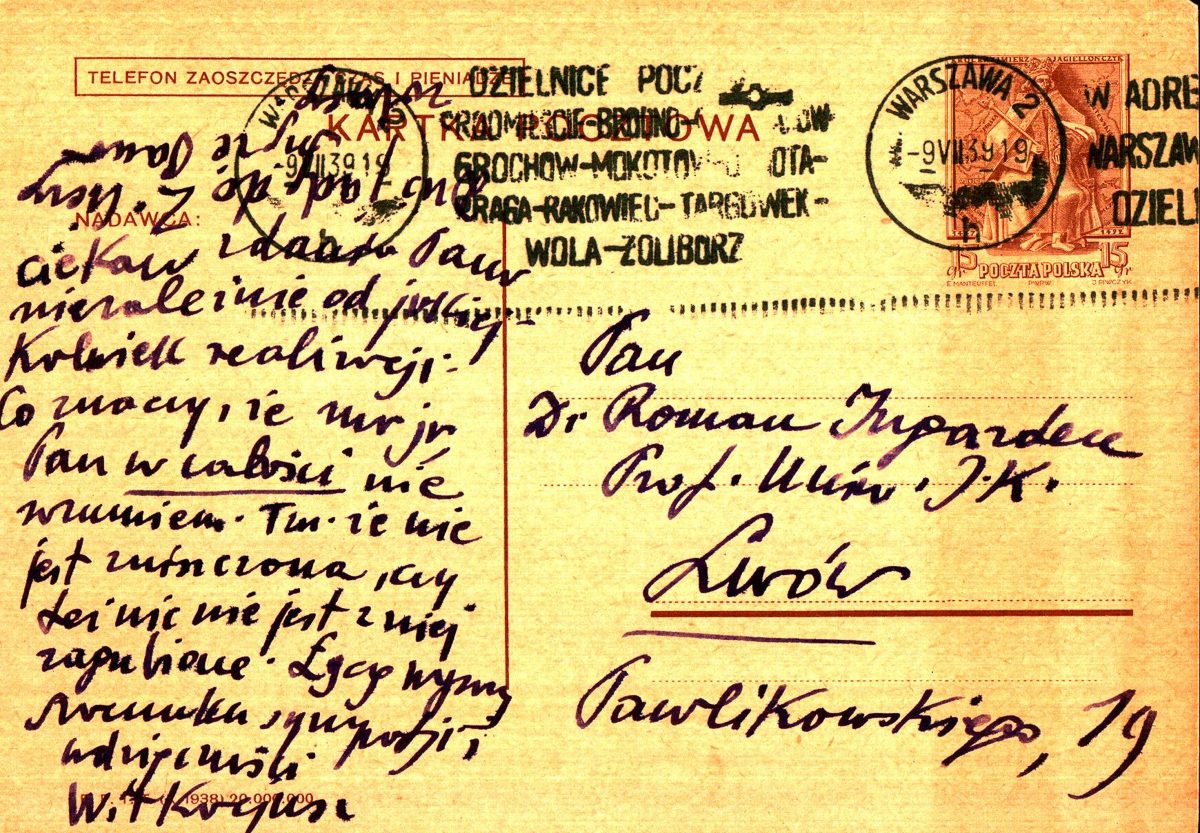 TELEFON ZAOSZCZĘDZA CZAS I PIENIĄDZE
KARTKA POCZTOWA
NADAWCA:
DZIELNICE POCZ
GROCHOW-MOKOTOW- OTA-
PRAGA-RAKOWIEC-TARGOWEK-
WOLA-ZOLIBORZ
WARSZAWA 2
-9VII3919
h
WARSZAWA 2
-9VII3919
h
W ADRE
WARSZAW
DZIEL
JAGIELLOŃCZYK
15 gr POCZTA POLSKA 15 gr
E. MANTEUFFEL P.W.P.W. J. PIWCZYK
ciekaw zdania Pana
niezależnie od jakiej-
kolwiek realizacji.
Co znaczy, że
Pan w całości nie
rozumiem. Tzn. że nie
jest zniszczona, czy
też nic nie jest z niej
zagubione. Łączę wyrazy
szacunku, sympatji i
wdzięczności
Witkacy
1938) 20.000.000
Pan
Dr Roman Ingarden
Prof. Uniw. J.K.
Lwów
Pawlikowskiego, 19